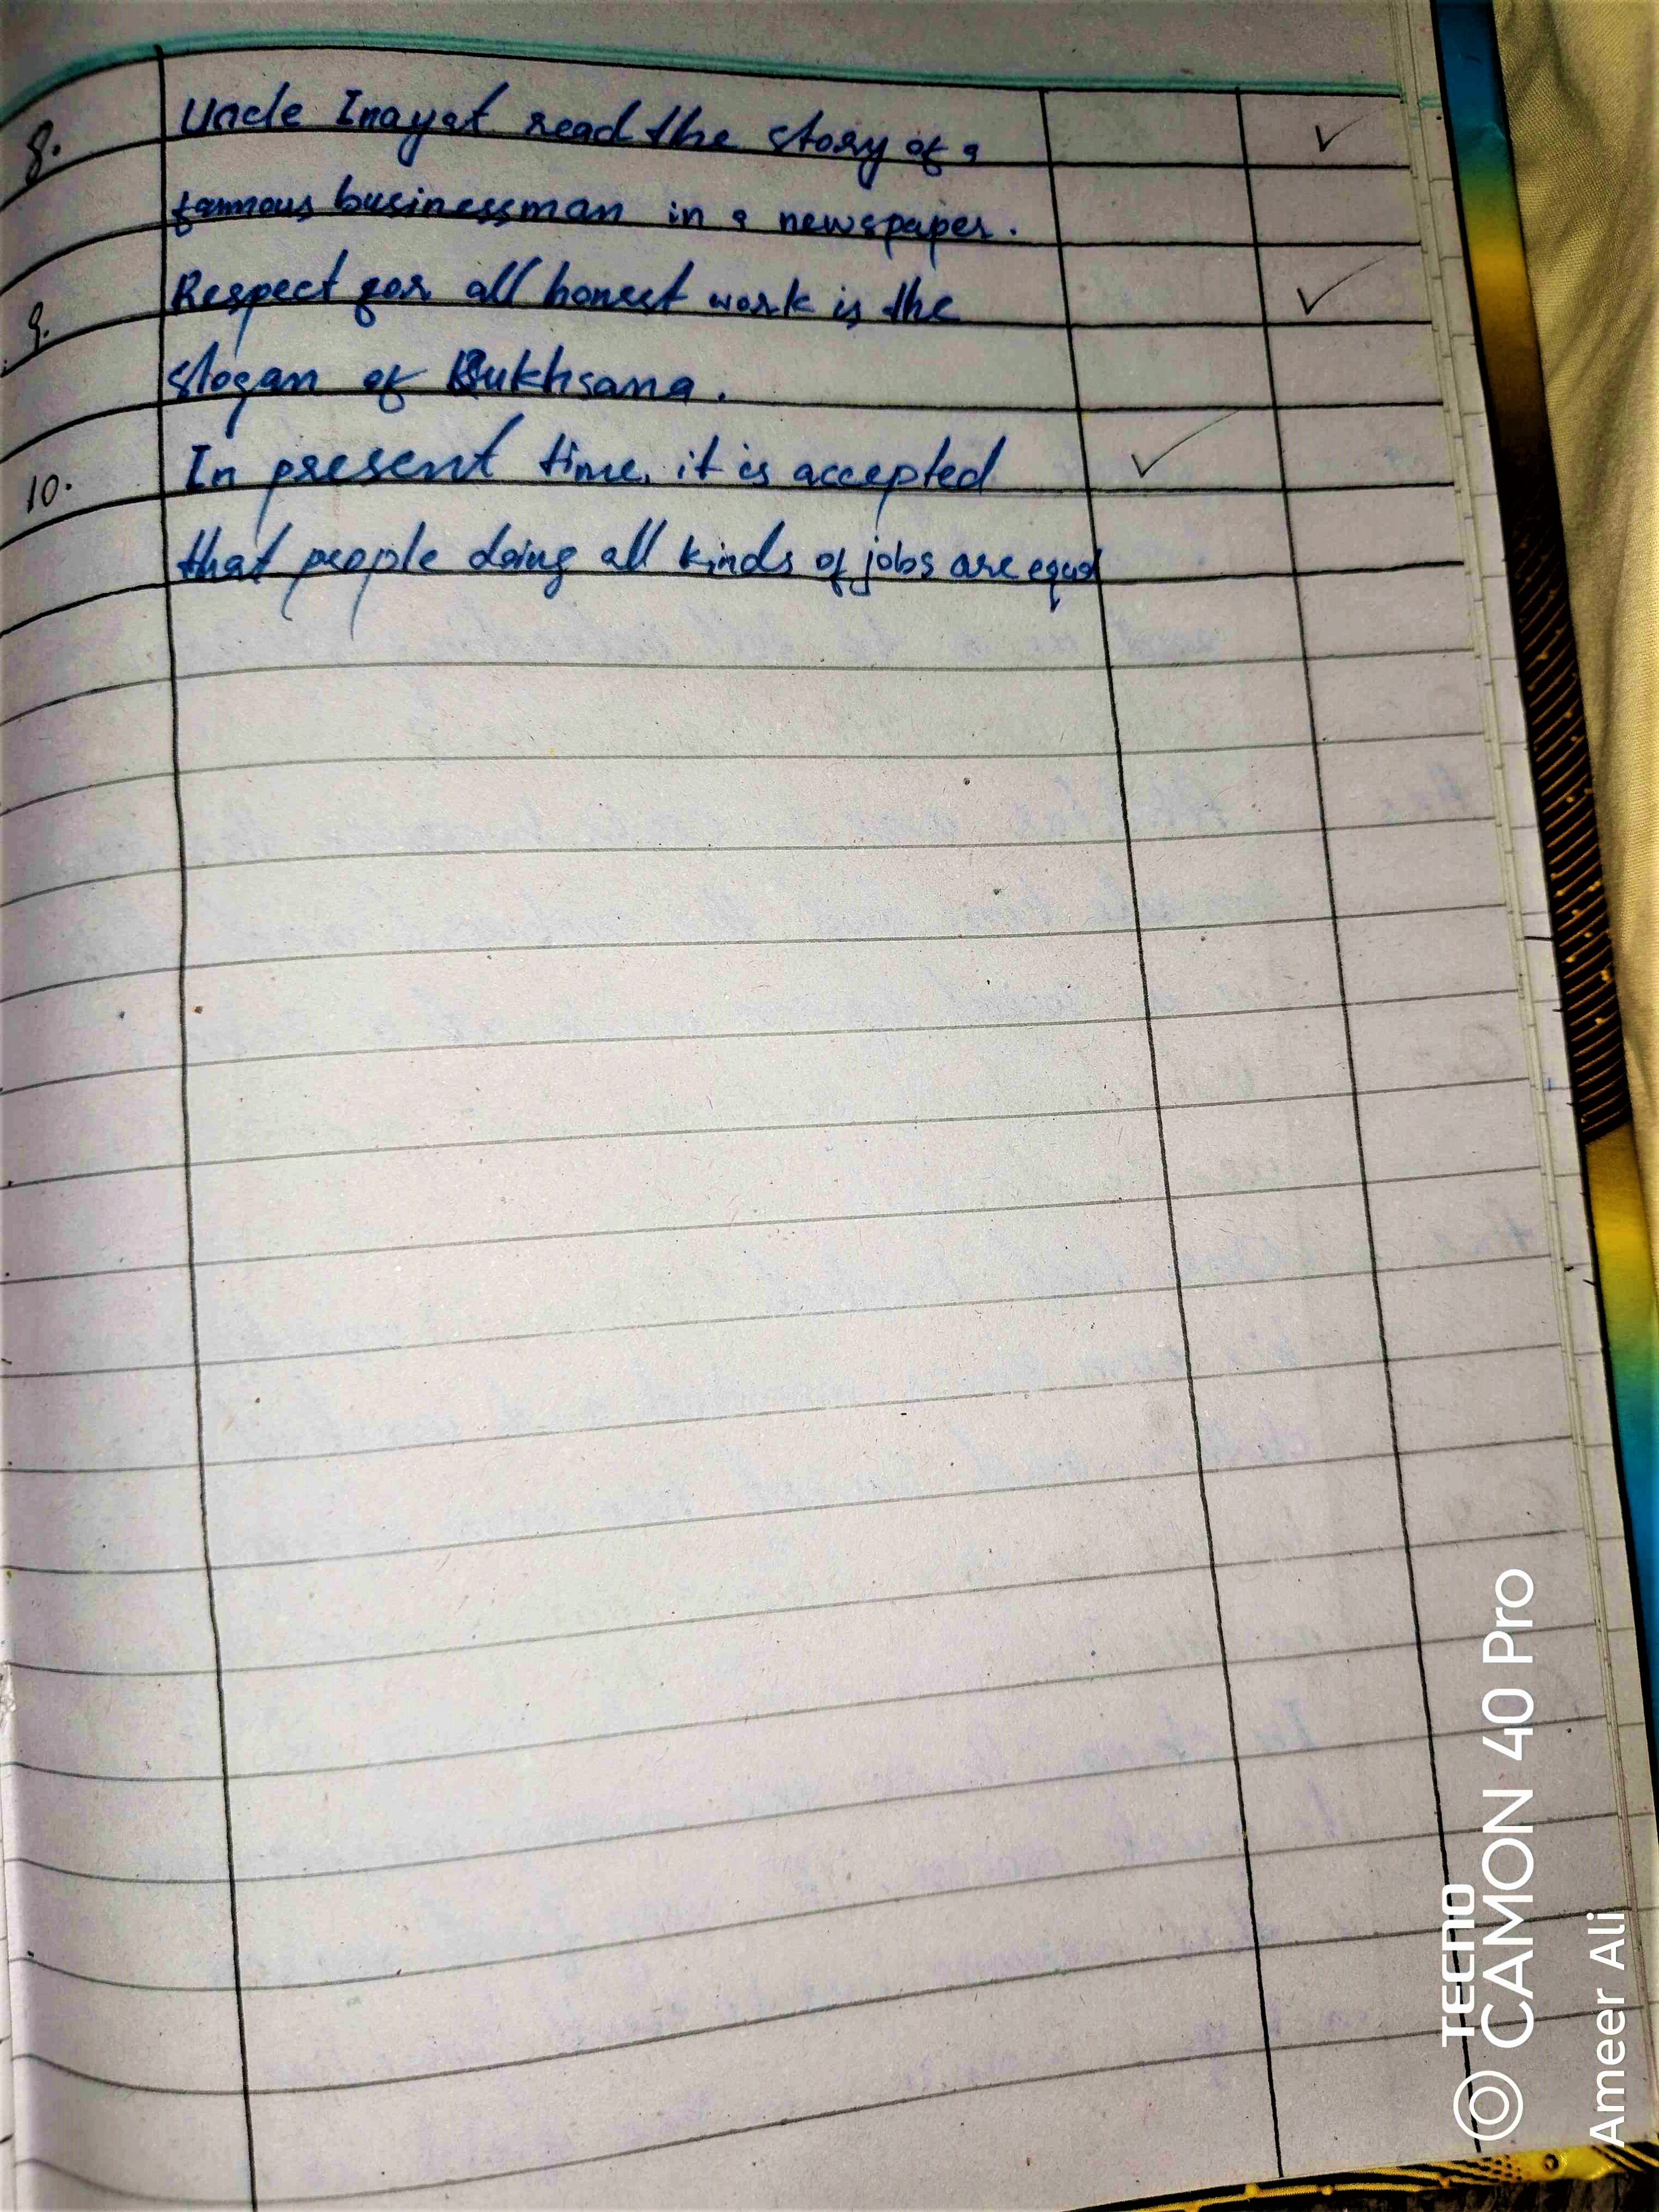 8. Uncle Inayat read the story of a ✓
famous businessman in a newspaper.
9. Respect for all honest work is the ✓
slogan of Rukhsana.
10. In present time, it is accepted ✓
that people doing all kinds of jobs are equal
TECNO
CAMON 40 Pro
Ameer Ali